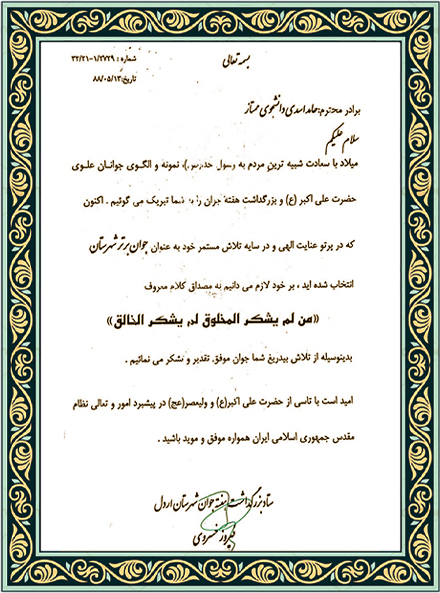 بسمه تعالی
شماره : ۳۲/۲۱-۱/۲۷۲۹
تاریخ:۸۸/۰۵/۱۳
برادر محترم:حامد اسدی دانشجوی ممتاز
سلام علیکم
میلاد با سعادت شبیه ترین مردم به رسول نمونه و الگوی جوانان علوی
حضرت علی اکبر (ع) و بزرگداشت هفته جوان را به شما تبریک می گوئیم . اکنون
که در پرتو عنایت الهی و در سایه تلاش مستمر خود به عنوان جوان برتر شهرستان
انتخاب شده اید ، بر خود لازم می دانیم به مصداق کلام معروف
«من لم یشکر المخلوق لم یشکر الخالق»
بدینوسیله از تلاش بیدریغ شما جوان موفق تقدیر و تشکر می نمائیم .
امید است با تاسی از حضرت علی اکبر(ع) و ولیعصر(عج) در پیشبرد امور و تعالی نظام
مقدس جمهوری اسلامی ایران همواره موفق و موید باشید .
ستاد بزرگداشت هفته جوان شهرستان اردل
فیروز خسروی